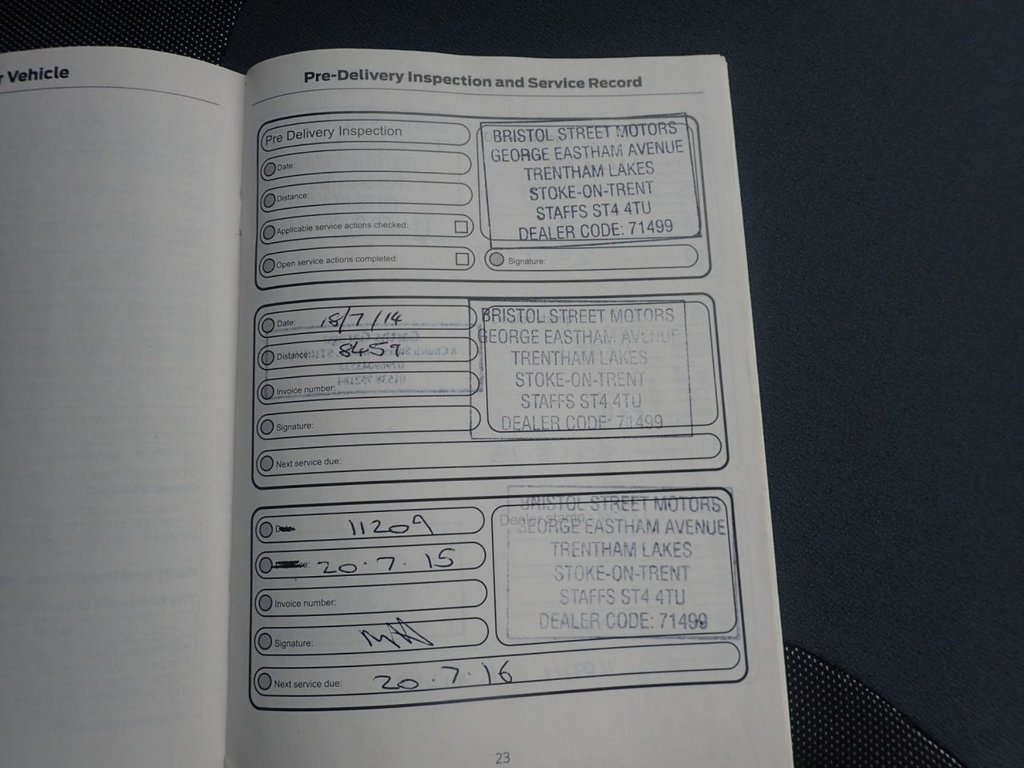 r Vehicle
Pre-Delivery Inspection and Service Record
Pre Delivery Inspection
Date:
Distance:
Applicable service actions checked:
Open service actions completed:
BRISTOL STREET MOTORS
GEORGE EASTHAM AVENUE
TRENTHAM LAKES
STOKE-ON-TRENT
STAFFS ST4 4TU
DEALER CODE: 71499
Signature:
Date: 18/7/14
Distance: 8459
Invoice number:
Signature:
Next service due:
BRISTOL STREET MOTORS
GEORGE EASTHAM AVENUE
TRENTHAM LAKES
STOKE-ON-TRENT
STAFFS ST4 4TU
DEALER CODE: 71499
11209
20.7.15
Invoice number:
Signature:
Next service due: 20.7.16
BRISTOL STREET MOTORS
GEORGE EASTHAM AVENUE
TRENTHAM LAKES
STOKE-ON-TRENT
STAFFS ST4 4TU
DEALER CODE: 71499
23